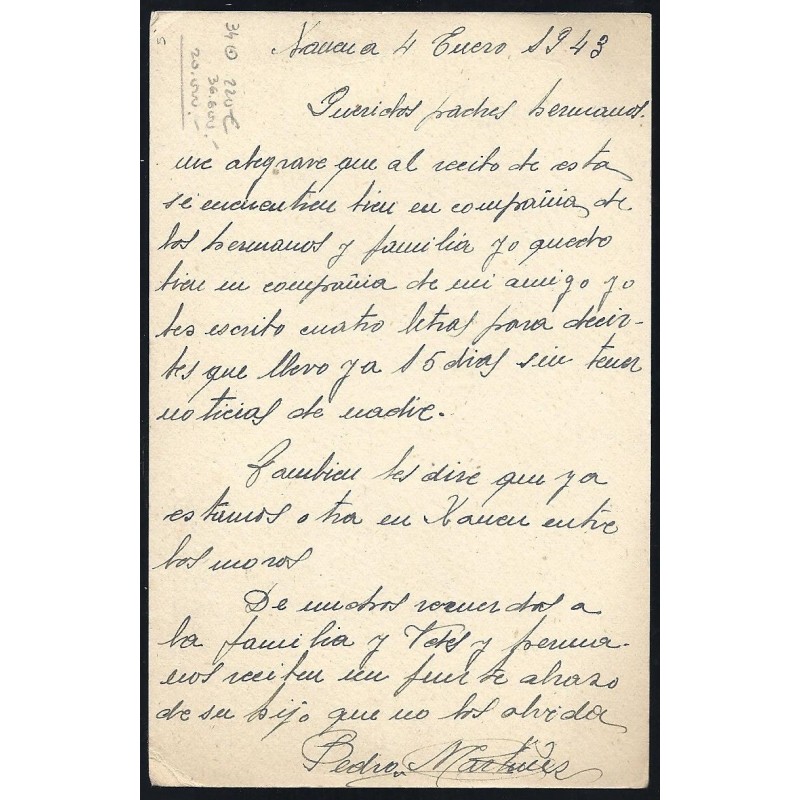 Xauen a 4 Enero 1943
Queridos padres hermanos.
me alegrare que al recibo de esta
se encuentren bien en compañia de
los hermanos y familia yo quedo
bien en compañia de mi amigo yo
les escribo cuatro letras para decir-
les que llevo ya 15 dias sin tener
noticias de nadie.
Tambien les dire que ya
estamos otra en Xauen entre
los moros
De muchos recuerdos a
la familia y Vdes y herma-
nos reciben un fuerte abrazo
de su hijo que no los olvida
Pedro Martinez
34 220€
36.000.-
20.000.-
5